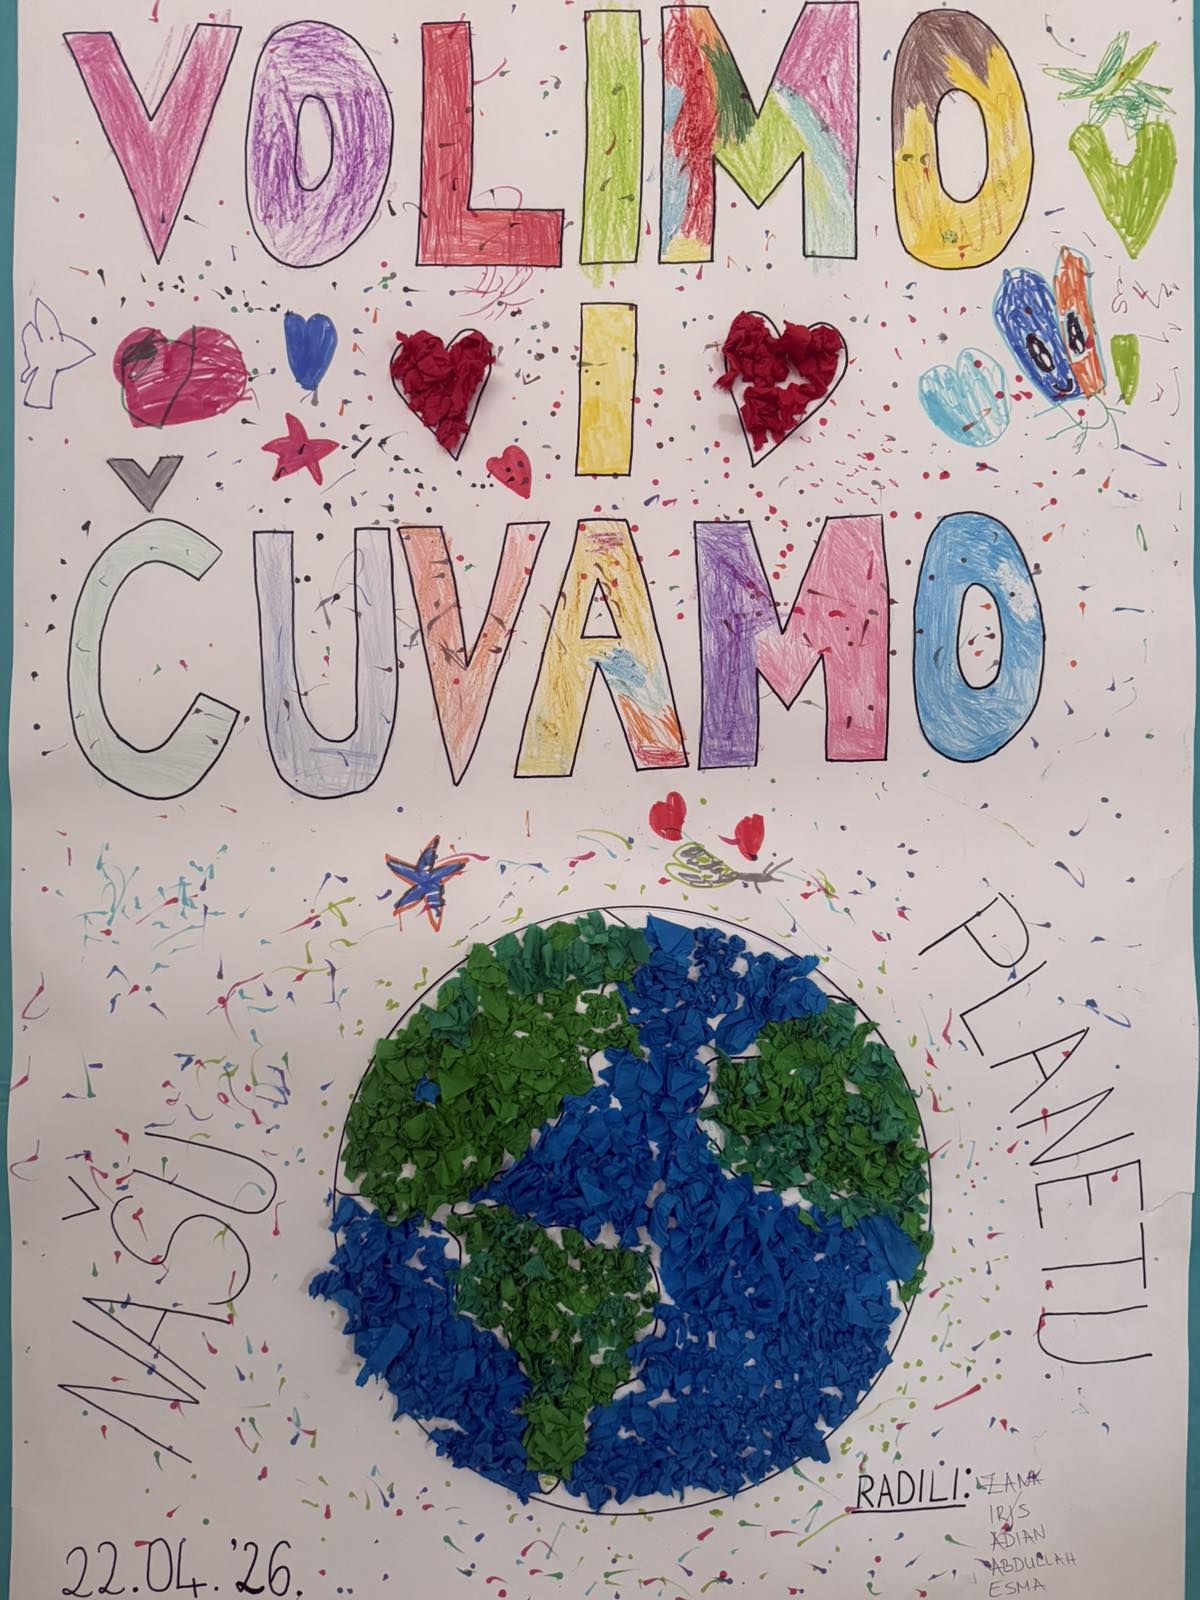 VOLIMO
I
ČUVAMO
NAŠU
PLANETU
RADILI:
IRIS
ADIAN
ABDULLAH
ESMA
22.04.'26.